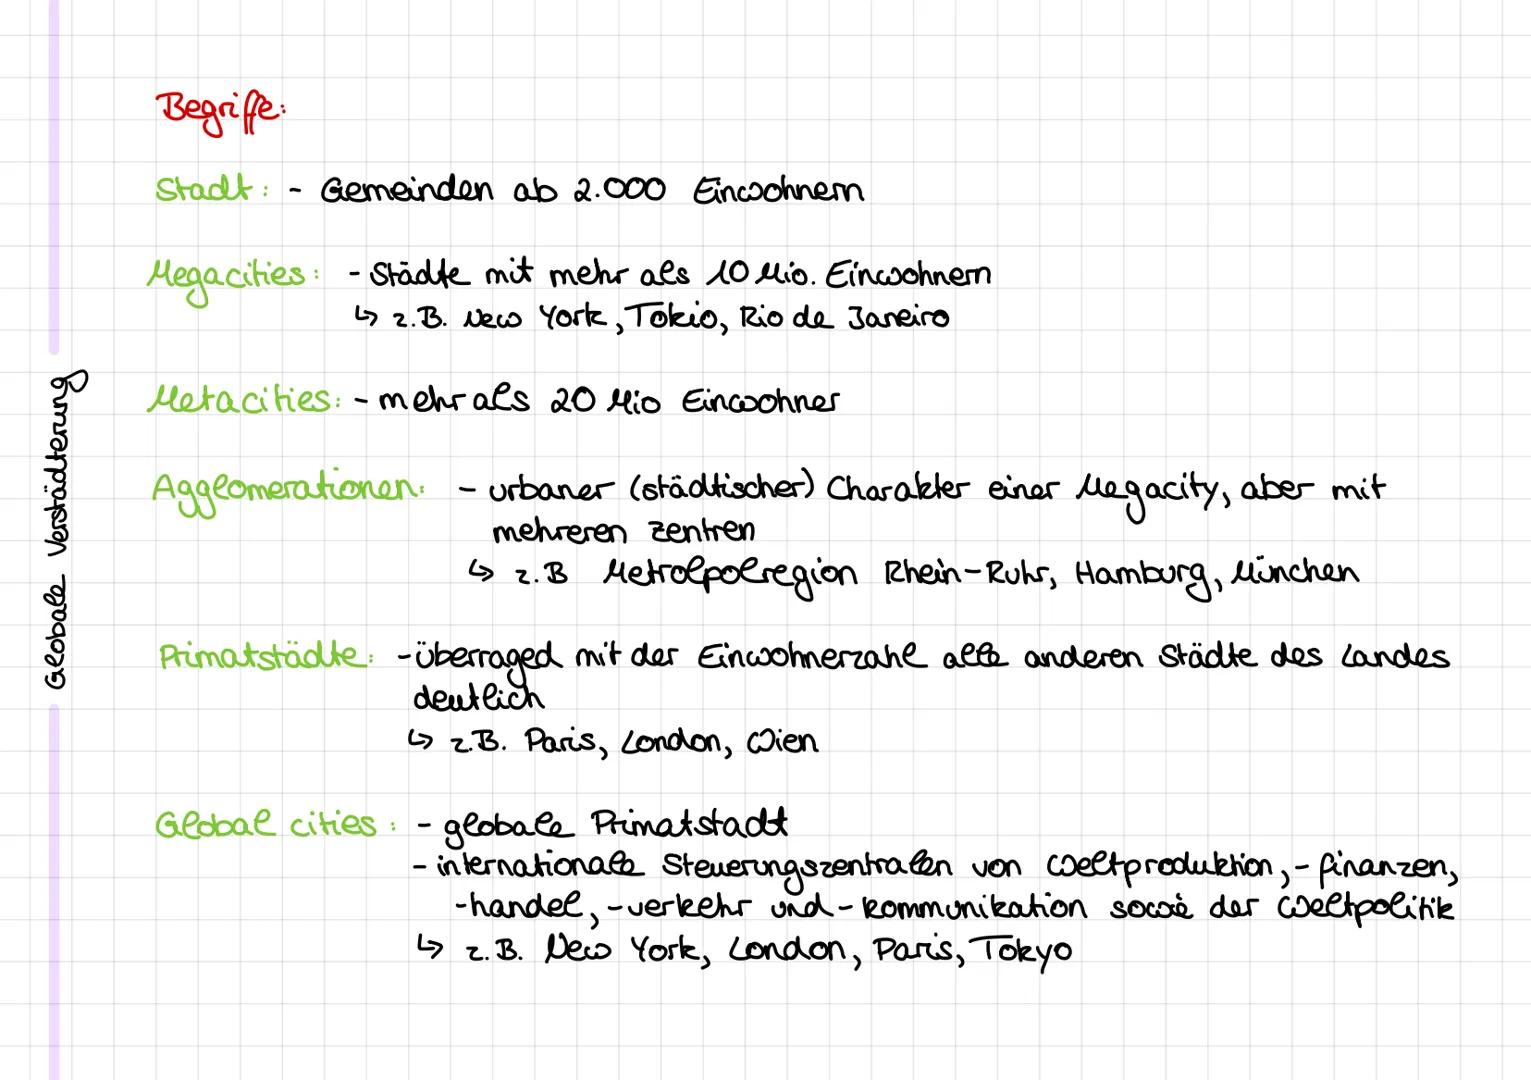 Globale Verstädterung
Begriffe:
Stadt: - Gemeinden ab 2.000 Einwohnern
Megacities: - Städte mit mehr als 10 Mio. Einwohnern
↳ z.B. New York, Tokio, Rio de Janeiro
Metacities: - mehr als 20 Mio Einwohner
Agglomerationen: - urbaner (städtischer) Charakter einer Megacity, aber mit
mehreren zentren
↳ z.B Metrolpolregion Rhein-Ruhr, Hamburg, München
Primatstädte: - überraged mit der Einwohnerzahl alle anderen Städte des Landes
deutlich
↳ z.B. Paris, London, Wien
Global cities: - globale Primatstadt
- internationale Steuerungszentralen von Weltproduktion, - finanzen,
-handel, -verkehr und -kommunikation sowie der Weltpolitik
↳ z.B. New York, London, Paris, Tokyo